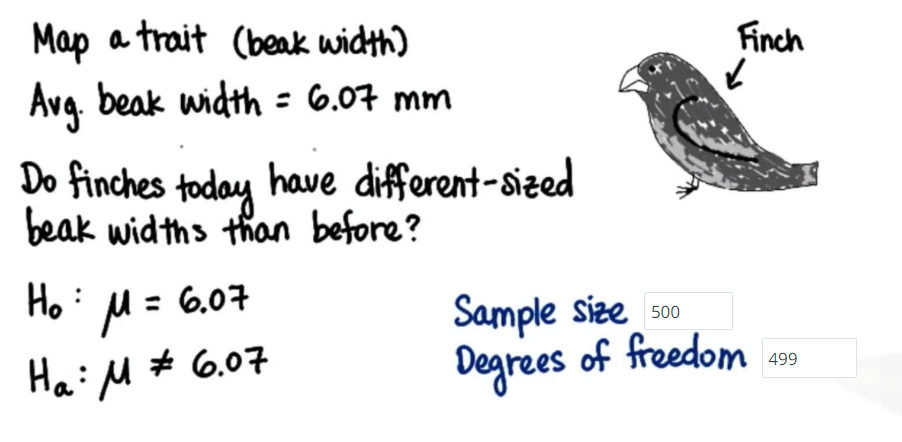 Map a trait (beak width)
Finch
Avg. beak width = 6.07 mm
Do finches today have different-sized
beak widths than before?
H₀: μ = 6.07
Hₐ: μ ≠ 6.07
Sample size 500
Degrees of freedom 499